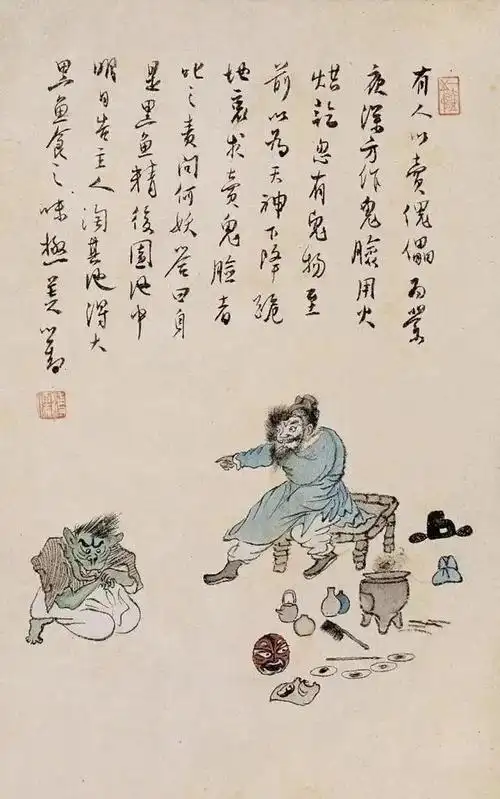 有人以賣傀儡為業
夜深方作鬼臉用火
烘乾忽有鬼物至
前以為天神下降跪
地哀求賣鬼臉者
叱之責問何妖答曰身
是黑魚精後園池中
明日告主人淘其池得大
黑魚食之味極美 心畬